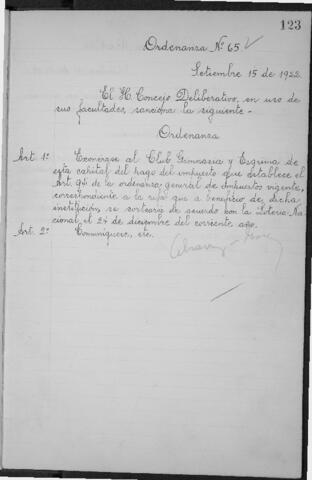 123
Ordenanza Nº 65
Setiembre 15 de 1922.
El H. Concejo Deliberativo, en uso de
sus facultades, sanciona la siguiente -
Ordenanza
Art. 1º Exonérase al Club Gimnasia y Esgrima de
esta capital del pago del impuesto que establece el
Art. 94 de la ordenanza general de impuestos vigente,
correspondiente a la rifa que a beneficio de dicha
institución, se sorteará de acuerdo con la Lotería Na-
cional, el 24 de diciembre del corriente año.
Art. 2º Comuníquese, etc.